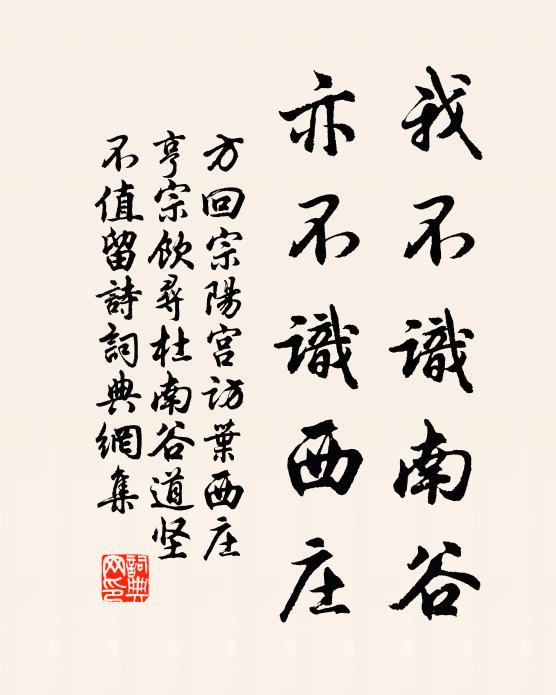 我不識南谷
亦不識西庄
方回宗陽宮访葉西庄
亨宗飲尋杜南谷道坚
不值留詩詞典網集
詞典网印